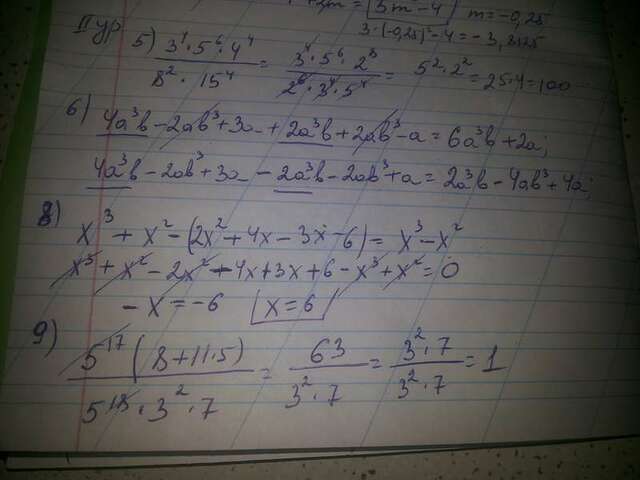 = 3m-4 m=-0,25
3·(-0,25)²-4=-3,8125
II ур.
5) 3⁴·5⁶·4⁴ / 8²·15⁴ = 3⁴·5⁶·2⁸ / 2⁶·3⁴·5⁴ = 5²·2² = 25·4=100
6) 4a³b-2ab³+3a+2a³b+2ab³-a=6a³b+2a;
4a³b-2ab³+3a-2a³b-2ab³+a=2a³b-4ab³+4a;
8) x³+x²-(2x²+4x-3x-6)=x³-x²
x³+x²-2x²-4x+3x+6-x³+x²=0
-x=-6 x=6
9) 5¹⁷(8+11·5) / 5¹⁸·3²·7 = 63 / 3²·7 = 3²·7 / 3²·7 = 1